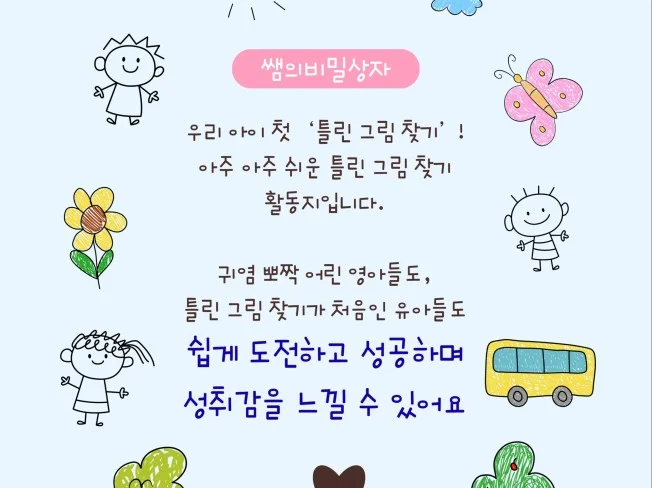 쌤의비밀상자
우리 아이 첫 '틀린 그림 찾기' !
아주 아주 쉬운 틀린 그림 찾기
활동지입니다.
귀염 뽀짝 어린 영아들도,
틀린 그림 찾기가 처음인 유아들도
쉽게 도전하고 성공하며
성취감을 느낄 수 있어요